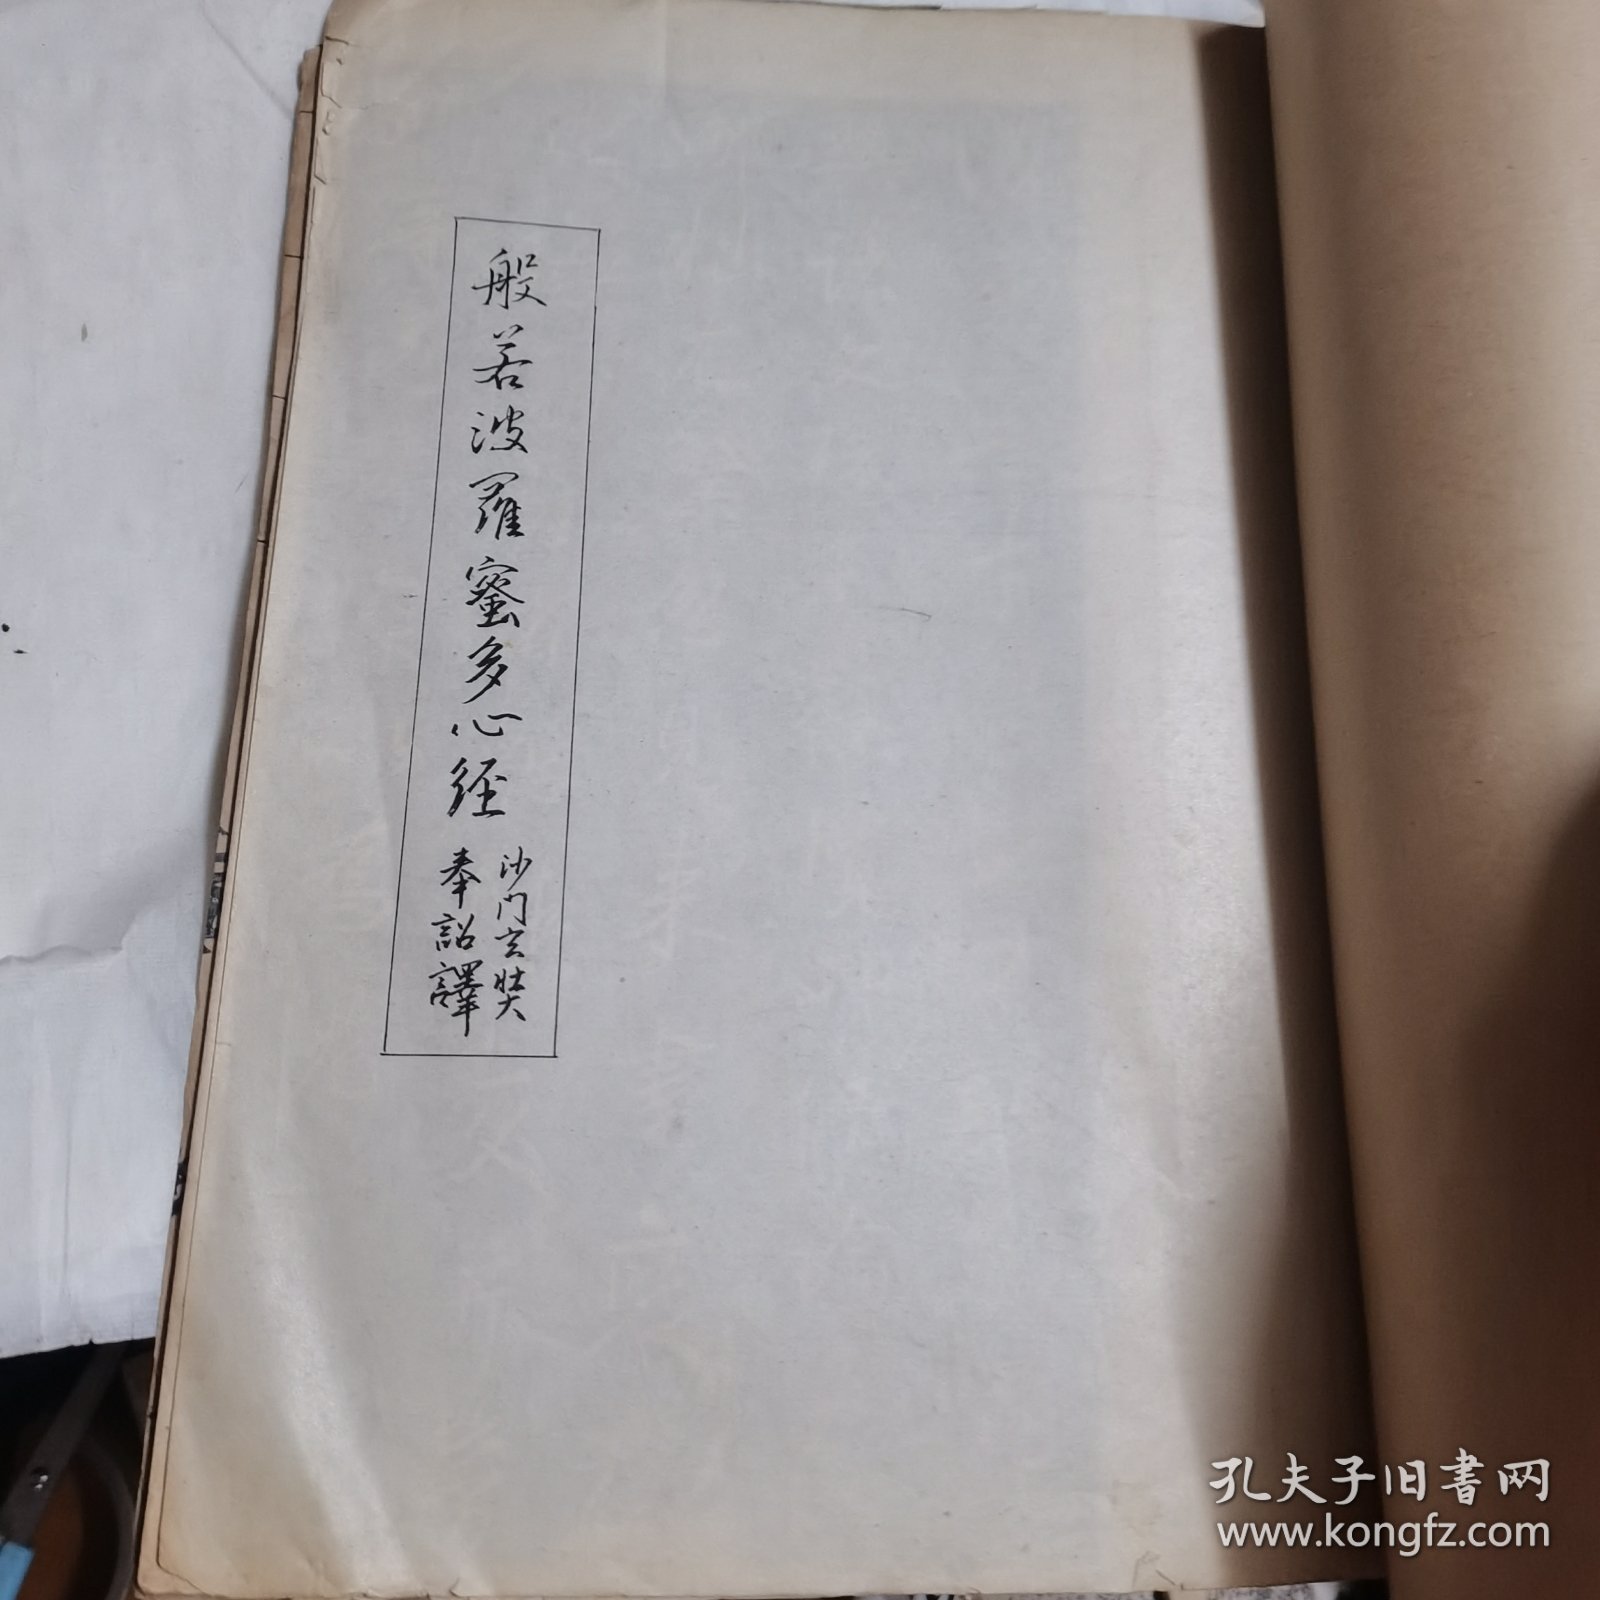 般若波羅蜜多心経
沙门玄奘
奉詔譯
孔夫子旧書网
www.kongfz.com